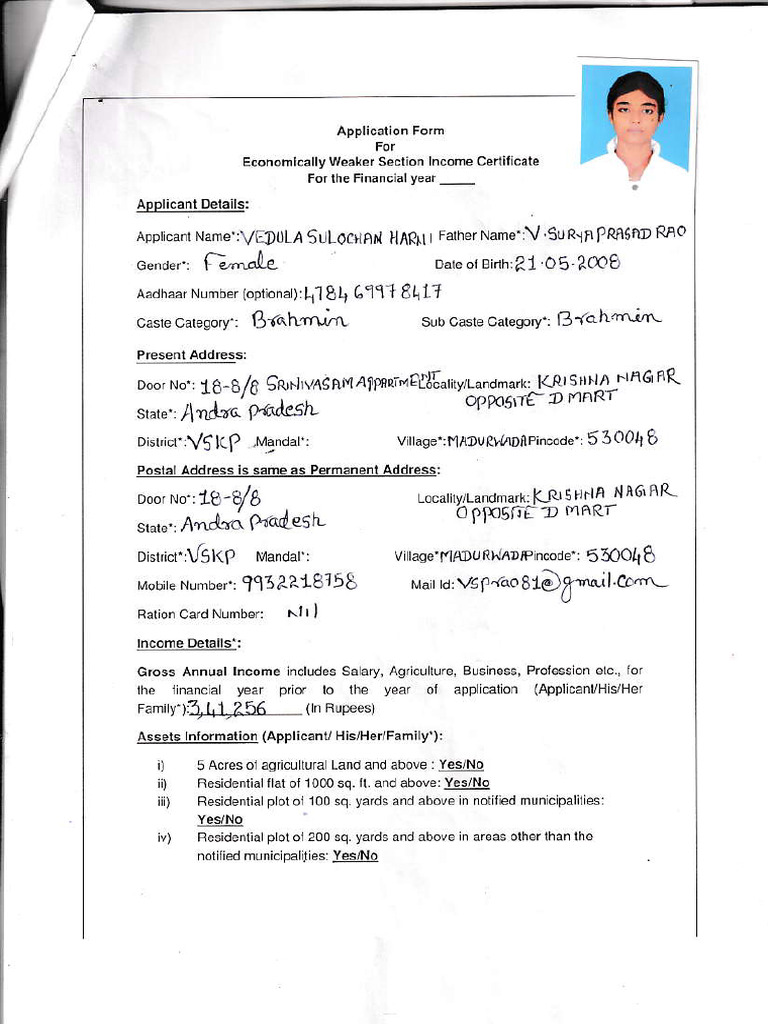 Application Form
For
Economically Weaker Section Income Certificate
For the Financial year ____
Applicant Details:
Applicant Name*: VEDULA SULOCHAN HARNI Father Name*: V. SURYAPRASAD RAO
Gender*: Female Date of Birth: 21-05-2008
Aadhaar Number (optional): 4784 6997 8417
Caste Category*: Brahmin Sub Caste Category*: Brahmin
Present Address:
Door No*: 18-8/8 SRINIVASAM APPARTMENT Locality/Landmark: KRISHNA NAGAR
OPPOSITE D MART
State*: Andra Pradesh
District*: VSKP Mandal*: Village*: MADURWADA Pincode*: 530048
Postal Address is same as Permanent Address:
Door No*: 18-8/8 Locality/Landmark: KRISHNA NAGAR
OPPOSITE D MART
State*: Andra Pradesh
District*: VSKP Mandal*: Village* MADURWADA Pincode*: 530048
Mobile Number*: 9932218758 Mail Id: vsprao81@gmail.com
Ration Card Number: Nil
Income Details*:
Gross Annual Income includes Salary, Agriculture, Business, Profession etc., for
the financial year prior to the year of application (Applicant/His/Her
Family*): 3,41,256 (In Rupees)
Assets Information (Applicant/ His/Her/Family*):
i) 5 Acres of agricultural Land and above : Yes/No
ii) Residential flat of 1000 sq. ft. and above: Yes/No
iii) Residential plot of 100 sq. yards and above in notified municipalities:
Yes/No
iv) Residential plot of 200 sq. yards and above in areas other than the
notified municipalities: Yes/No